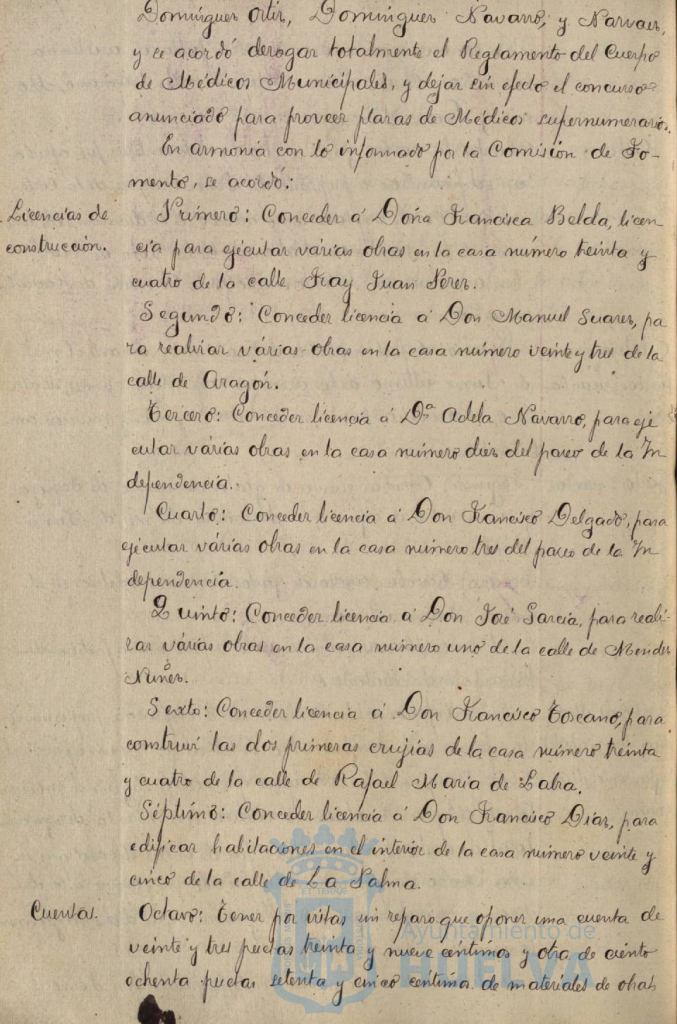 Domínguez Ortiz, Domínguez Navarro, y Narvaez,
y se acordó derogar totalmente el Reglamento del Cuerpo
de Médicos Municipales, y dejar sin efecto el concurso
anunciado para proveer plazas de Médicos supernumerarios.
En armonía con lo informado por la Comisión de Fo-
mento, se acordó:
Licencias de
construcción.
Primero: Conceder á Doña Francisca Belda, licen
cia para ejecutar várias obras en la casa número treinta y
cuatro de la calle Fray Juan Perez.
Segundo: Conceder licencia á Don Manuel Suarez, pa
ra realizar várias obras en la casa número veinte y tres de la
calle de Aragón.
Tercero: Conceder licencia á Dª Adela Navarro, para eje
cutar várias obras en la casa número diez del paseo de la In
dependencia.
Cuarto: Conceder licencia á Don Francisco Delgado, para
ejecutar várias obras en la casa número tres del paseo de la In
dependencia.
Quinto: Conceder licencia á Don José García, para reali-
zar várias obras en la casa número uno de la calle de Mendez
Nuñez.
Sexto: Conceder licencia á Don Francisco Toscano, para
construir las dos primeras crujías de la casa número treinta
y cuatro de la calle de Rafael María de Labra.
Séptimo: Conceder licencia á Don Francisco Diaz, para
edificar habitaciones en el interior de la casa número veinte y
cinco de la calle de La Palma.
Cuentas.
Octavo: Tener por vistas sin reparo que oponer una cuenta de
veinte y tres pesetas treinta y nueve céntimos y otra de ciento
ochenta pesetas setenta y cinco céntimos de materiales de obras
Ayuntamiento de
HUELVA